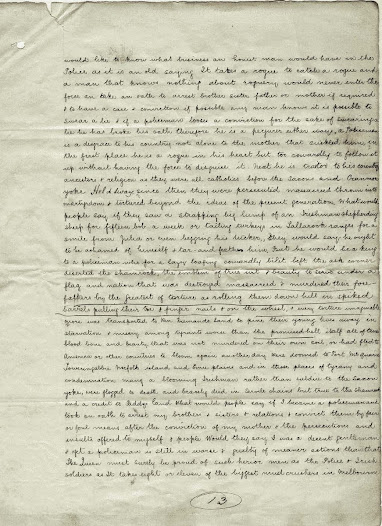 would like to know what business an honest man would have in the
Police as it is an old saying It takes a rogue to catch a rogue and
a man that knows nothing about roguery would never enter the
force an take an oath to arrest brother sister father or mother if required
& to have a case & conviction if possible any man knows it is possible to
swear a lie & if a policeman looses a conviction for the sake of swearing a
lie he has broke his oath therefore he is a perjurer either ways, a Policeman
is a disgrace to his country not alone to the mother that suckled him, in
the first place he is a rogue in his heart but too cowardly to follow it
up without having the force to disguise it. next he is traitor to his country
ancestors & religion as they were all catholics before the Saxons and Cranmore
yoke Held sway since then they were persecuted massacred thrown into
martyrdom & tortured beyond the ideas of the present generation What would
people say if they saw a strapping big lump of an Irishman shepherding
sheep for fifteen bob a week or tailing turkeys in Tallarook ranges for a
smile from Julia or even begging his tucker, they would say he ought
to be ashamed of himself & tar and feather him, But he would be a king
to a policeman who for a lazy loafing cowardly bilit left the ash corner
deserted the shamrock, the emblem of true wit & beauty to serve under a
flag and nation that has destroyed massacred & murdered their fore-
fathers by the greatest of torture as rolling them down hill in spiked
barrels pulling their toe & finger nails & on the wheel. & every torture imaginable
more was transported to Van Diemand's Land to pine their young lives away in
starvation & misery among tyrants worse than the promised hell itself all of true
blood bone and beauty, that was not murdered on their own soil, or had fled to
America or other countries to bloom again another day, were doomed to Port McQuarie
Toweringabbie Norfolk island and Emu plains and in those places of tyrany and
condemnation many a blooming Irishman rather than subdue to the Saxon
yoke, were flogged to death and bravely died in servile chains but true to the shamrock
and a credit to Paddys land What would people say if I became a policeman and
took an oath to arrest my brothers & sisters & relations & convict them by fair
or foul means after the conviction of my mother & the persecutions and
insults offered to myself & people Would they say I was a decent gentleman
& yet a policeman is still in worse & guilty of meaner actions than that
The Queen must surely be proud of such heroic men as the Police & Irish
soldiers as It takes eight or eleven of the biggest mud crushers in Melbourne
13